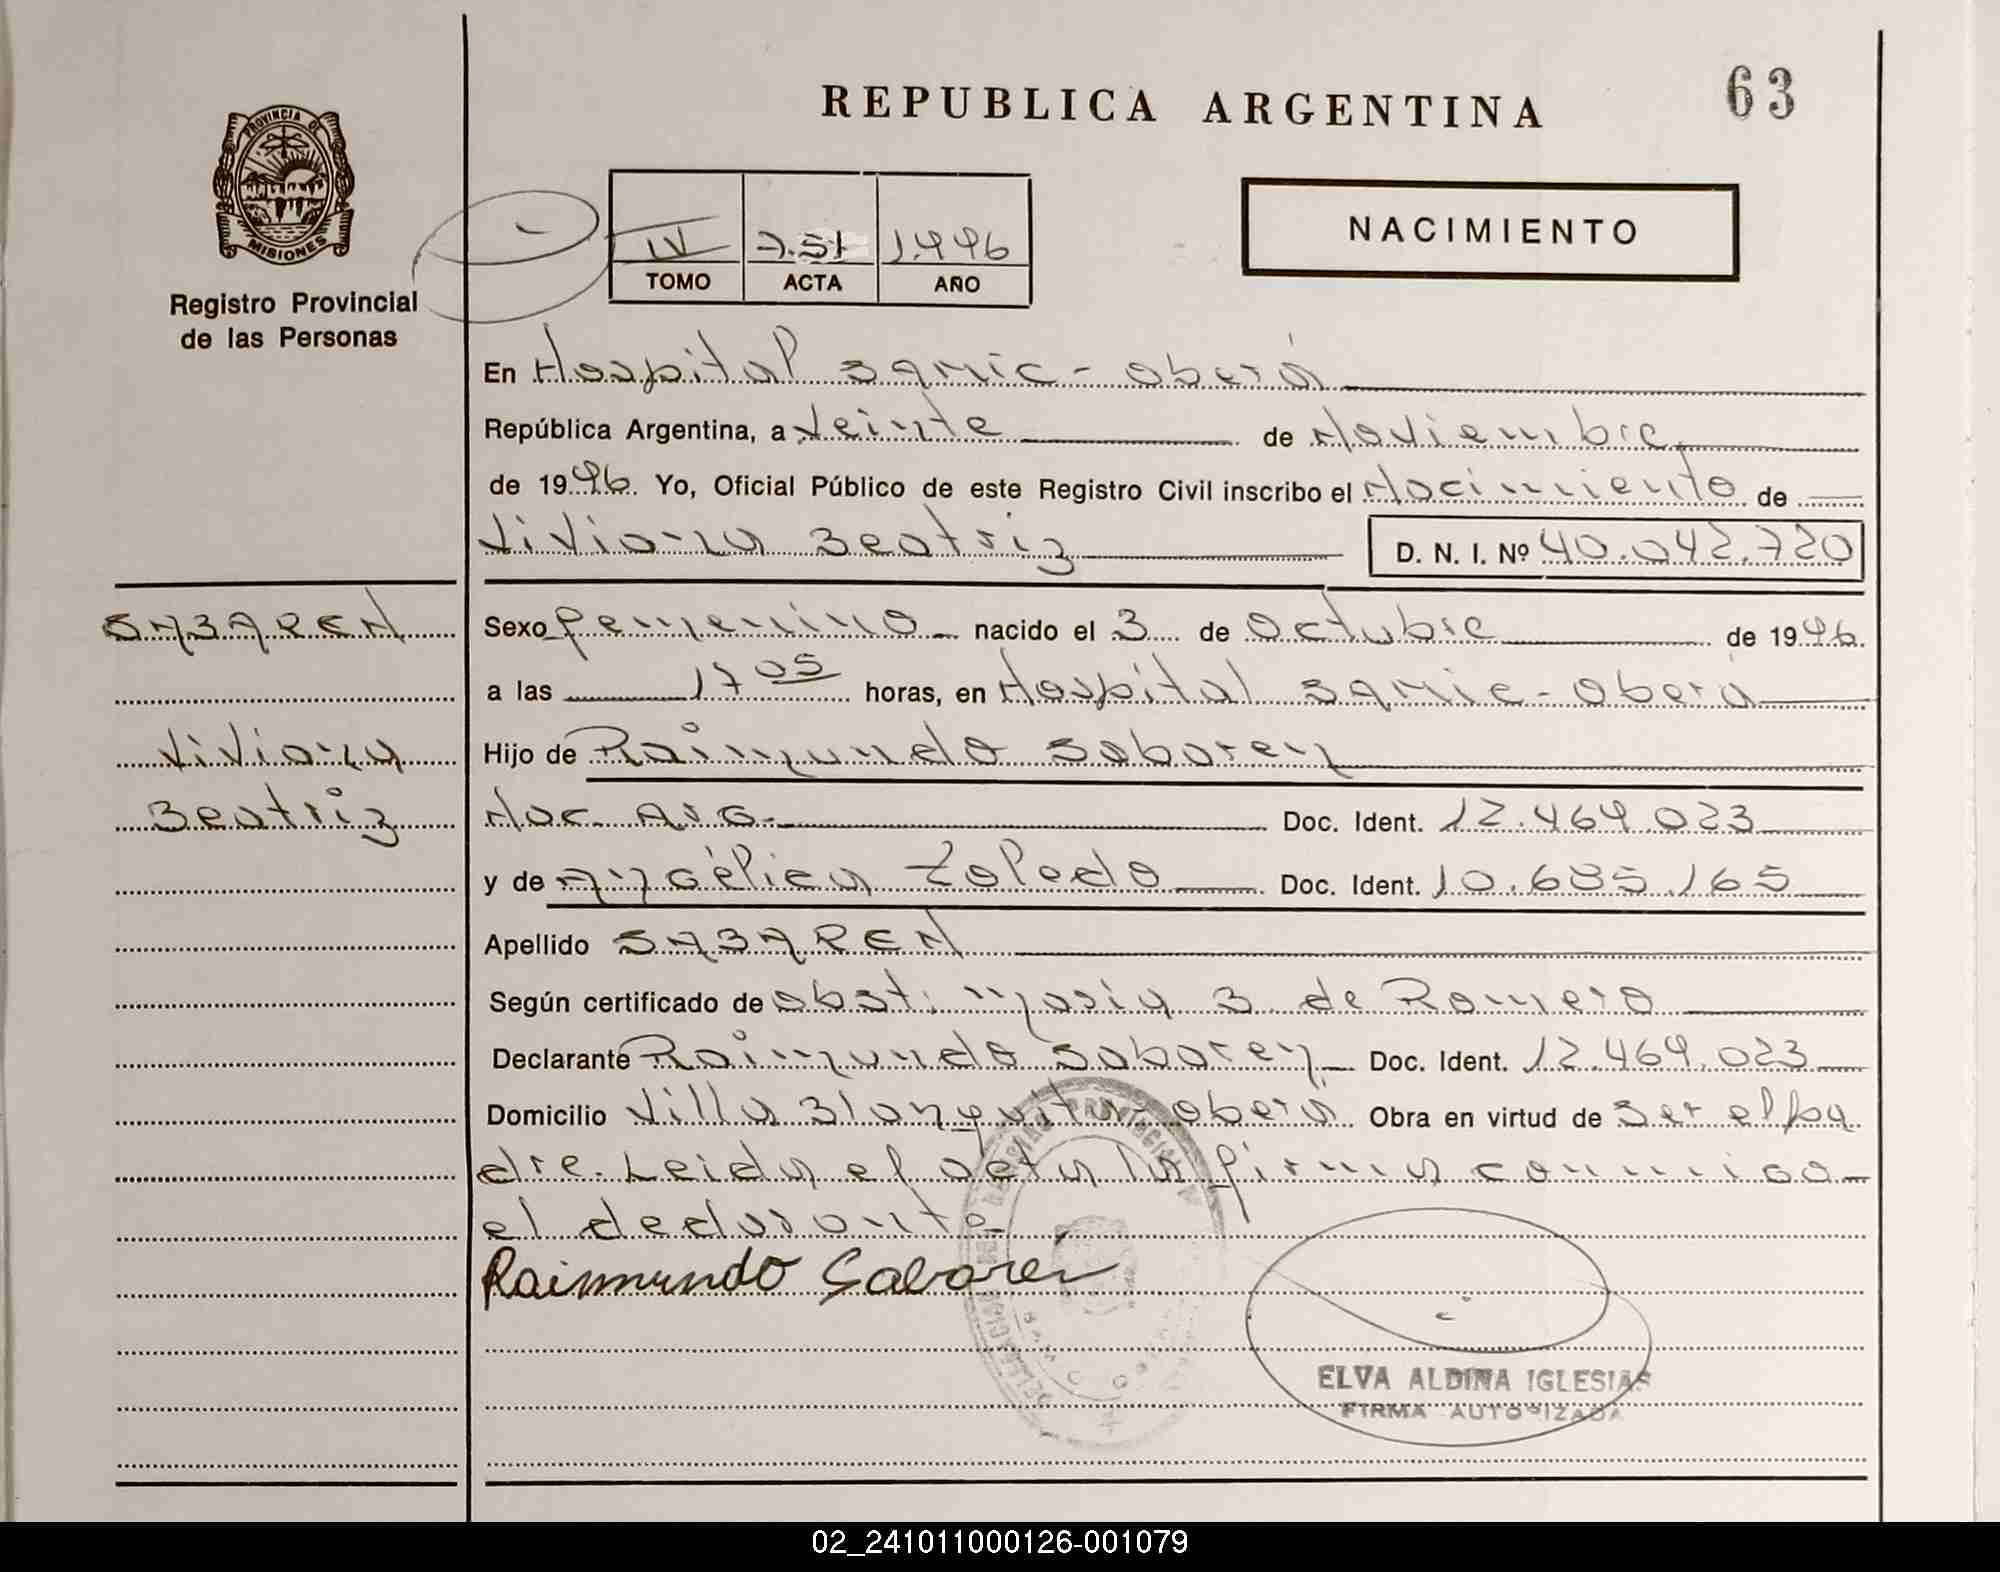 REPUBLICA ARGENTINA
63
PROVINCIA DE
MISIONES
Registro Provincial
de las Personas
IV 751 1.996
TOMO ACTA AÑO
NACIMIENTO
En Hospital Samic - Oberá
República Argentina, a Veinte de Noviembre
de 1996. Yo, Oficial Público de este Registro Civil inscribo el Nacimiento de
Viviana Beatriz D. N. I. Nº 40.042.720
SABAREN
Viviana
Beatriz
Sexo femenino nacido el 3 de Octubre de 1996.
a las 17 05 horas, en Hospital Samic - Oberá
Hijo de Raimundo Sabaren
Nac. Arg. Doc. Ident. 12.469.023
y de Angélica Toledo Doc. Ident. 10.685.165
Apellido SABAREN
Según certificado de obst. María B. de Romero
Declarante Raimundo Sabaren Doc. Ident. 12.469.023
Domicilio Villa Blanquita - Oberá Obra en virtud de Ser el pa
dre. Leida el acta la firma conmigo
el declarante
Raimundo Sabarén
ELVA ALDINA IGLESIAS
FIRMA AUTORIZADA
02_241011000126-001079